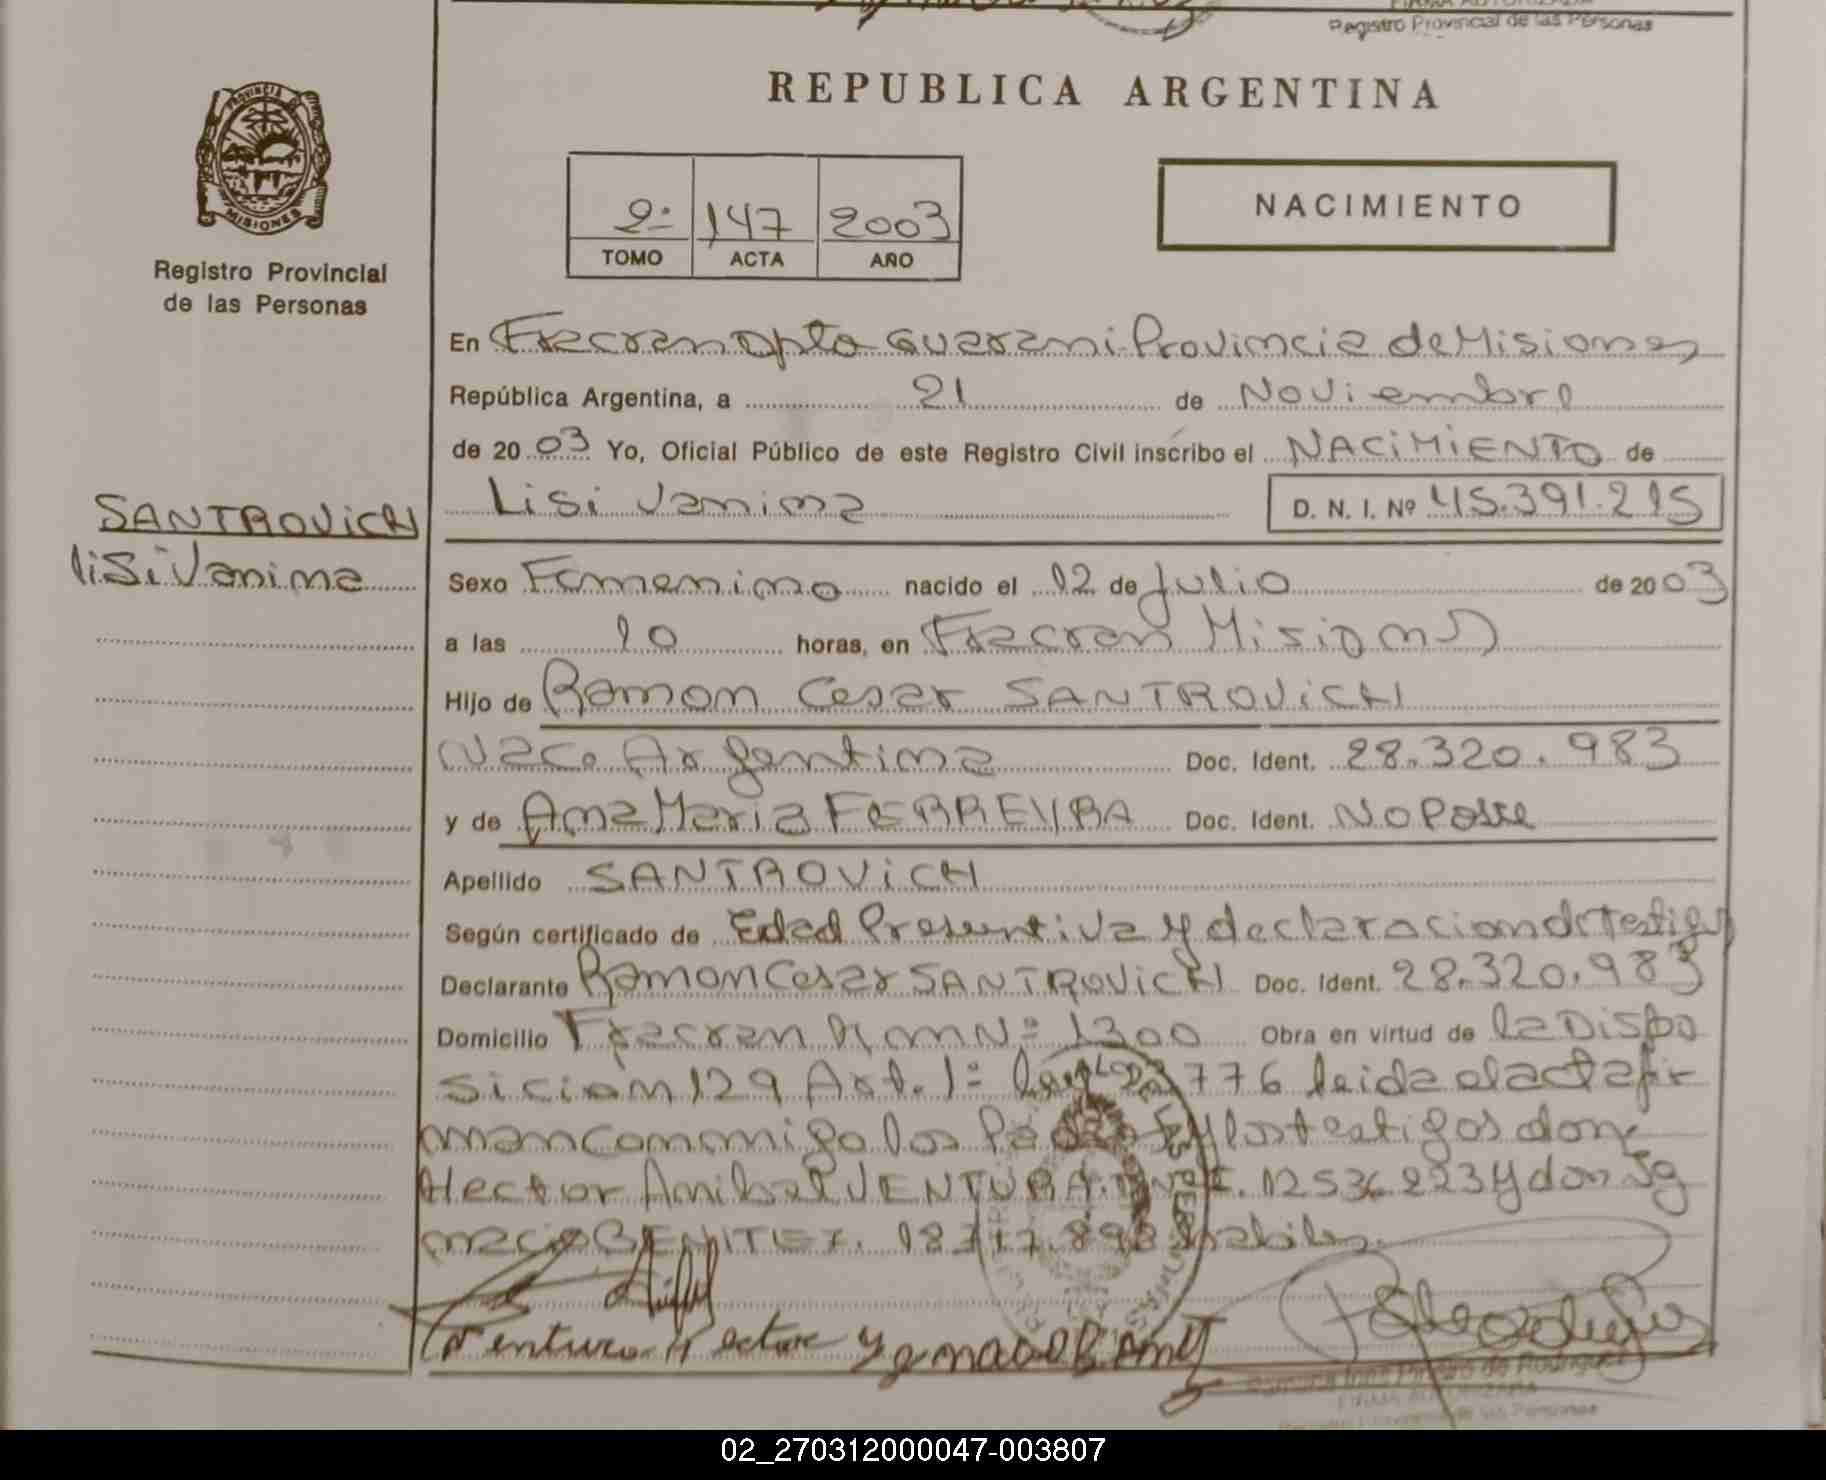 Registro Provincial de las Personas
REPUBLICA ARGENTINA
PROVINCIA DE
MISIONES
Registro Provincial
de las Personas
2º 147 2003
TOMO ACTA AÑO
NACIMIENTO
En Fracran Dpto Guarani Provincia de Misiones
República Argentina, a 21 de Noviembre
de 2003 Yo, Oficial Público de este Registro Civil inscribo el NACIMIENTO de
Lisi Vanina D. N. I. Nº 45.391.215
SANTROVICH
lisi Vanina
Sexo Femenino nacido el 12 de Julio de 2003
a las 10 horas, en Fracran Misiones
Hijo de Ramon Cesar SANTROVICH
Nac. Argentina Doc. Ident. 28.320.983
y de Ana Maria FERREYRA Doc. Ident. No Posee
Apellido SANTROVICH
Según certificado de Edad Presuntiva y declaracion de Testigos
Declarante Ramon Cesar SANTROVICH Doc. Ident. 28.320.983
Domicilio Fracran KM Nº 1300 Obra en virtud de la Dispo
sicion 129 Art. 1º ley 23776 leida el acta fir
man conmigo los y los testigos don
Hector Anibal VENTURA 12536223 y don Ig
nacio BENITEZ. habiles.
Ventura Hector Ygnacio
de Rodriguez
FIRMA AUTORIZADA
Registro Provincial de las Personas
02_270312000047-003807